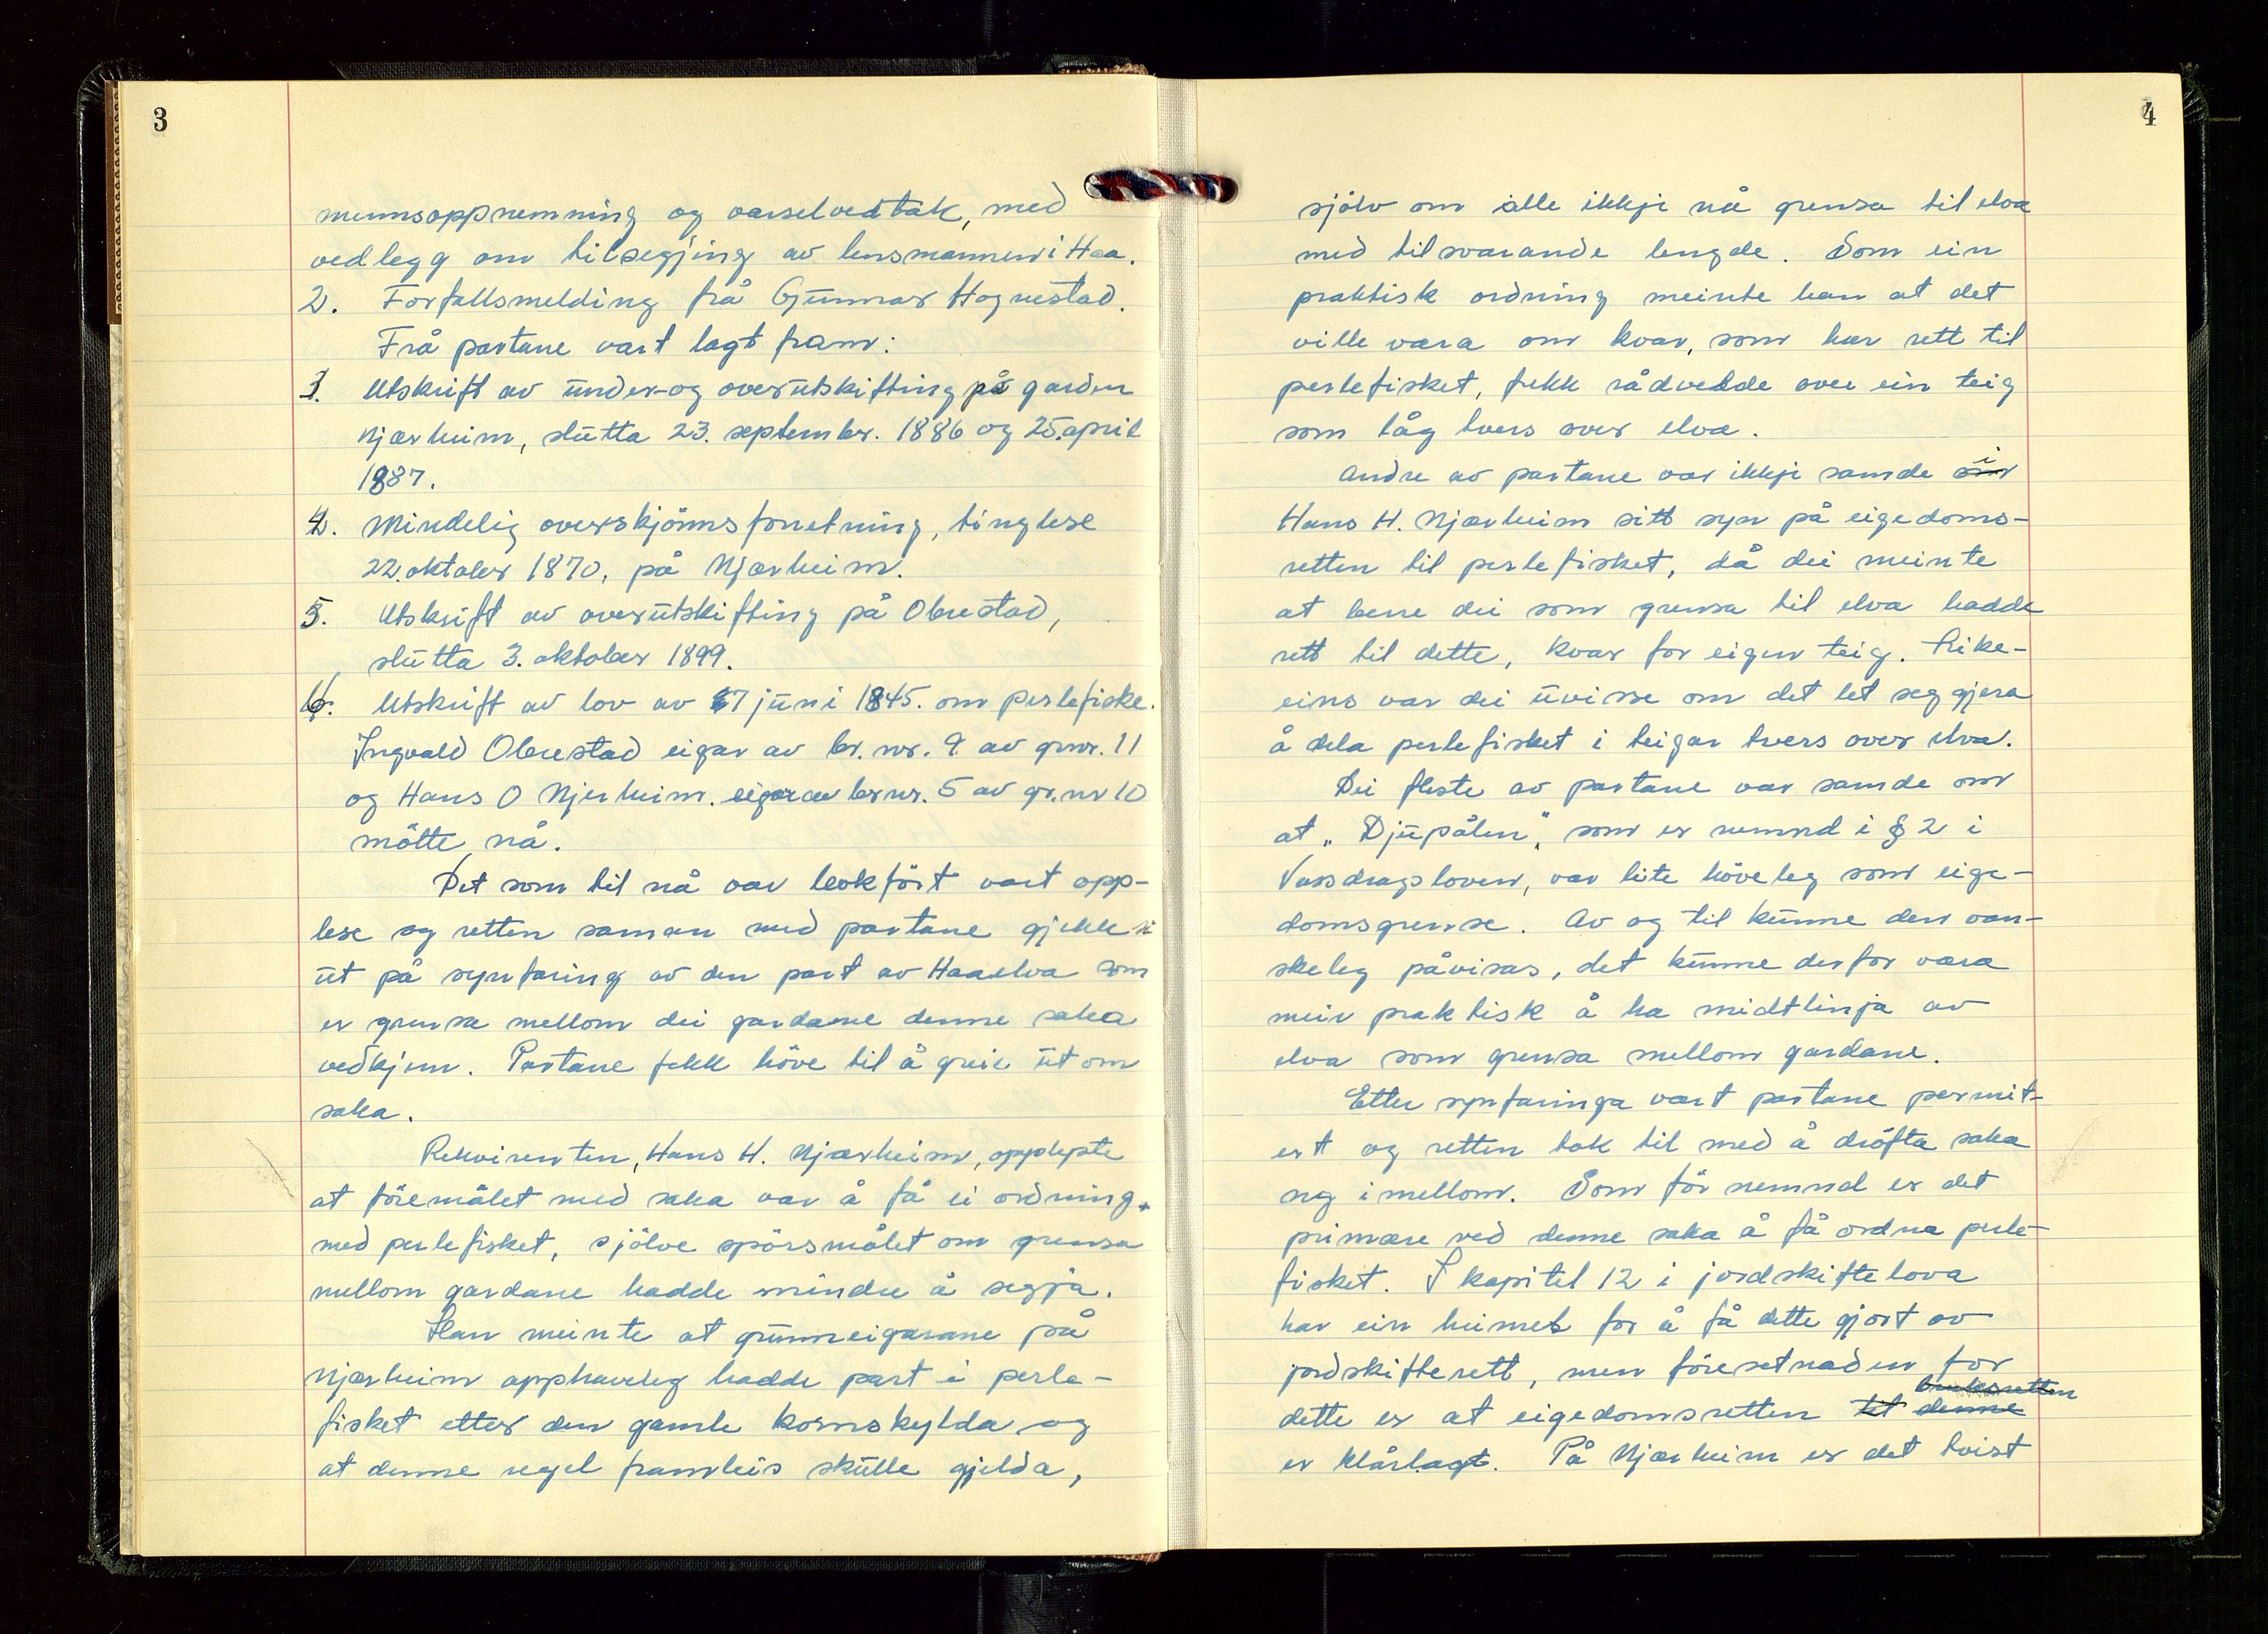 3
mennsoppnemning og varselvedtak, med
vedlegg om tilsegjing av lensmannen i Haa.
2. Forfallsmelding frå Gunnar Hognestad.
Frå partane vart lagt fram:
3. Utskrift av under- og overutskifting på garden
Njærheim, slutta 23. septembr. 1886 og 25. april
1887.
4. Mindelig overskjönnsforretning, tinglese
22. oktober 1870, på Njærheim.
5. Utskrift av overutskifting på Obrestad,
slutta 3. oktober 1899.
6. Utskrift av lov av 7 juni 1845. om perlefiske.
Ingvald Obrestad eigar av br. nr. 9 av gnr. 11
og Hans O Njerheim. eigar av br nr. 5 av gr. nr 10
mötte nå.
Det som til nå var bokfört vart opp-
lese og retten saman med partane gjekk
ut på synfaring av den part av Haaelva som
er grensa mellom dei gardane denne saka
vedkjem. Partane fekk höve til å greie ut om
saka.
Rekvirenten, Hans H. Njærheim, opplyste
at föremålet med saka var å få ei ordning
med perlefisket, sjölve spörsmålet om grensa
mellom gardane hadde mindre å segja.
Han meinte at grunneigarane på
Njærheim opphaveleg hadde part i perle-
fisket etter den gamle kornskylda og
at denne regel framleis skulle gjelda,
4
sjölv om alle ikkje nå grensa til elva
med tilsvarande lengde. Som ein
praktisk ordning meinte han at det
ville vera om kvar, som har rett til
perlefisket, fekk rådvelde over ein teig
som låg tvers over elva.
Andre av partane var ikkje samde i
Hans H. Njærheim sitt syn på eigedoms-
retten til perlefisket, då dei meinte
at berre dei som grensa til elva hadde
rett til dette, kvar for eigen teig. Like-
eins var dei uvisse om det let seg gjera
å dela perlefisket i teigar tvers over elva.
Dei fleste av partane var samde om
at „Djupålen", som er nemnd i § 2 i
Vassdragsloven, var lite höveleg som eige-
domsgrense. Av og til kunne den van-
skeleg påvisas, det kunne derfor vera
meir praktisk å ha midtlinja av
elva som grensa mellom gardane.
Etter synfaringa vart partane permit-
ert og retten tok til med å dröfta saka
seg imellom. Som för nemnd er det
primære ved denne saka å få ordna perle-
fisket. I kapitel 12 i jordskiftelova
har ein heimel for å få dette gjort av
jordskifterett, men föresetnaden for
bruksretten
dette er at eigedomsretten tel denne
er klårlagt. På Njærheim er det tvist